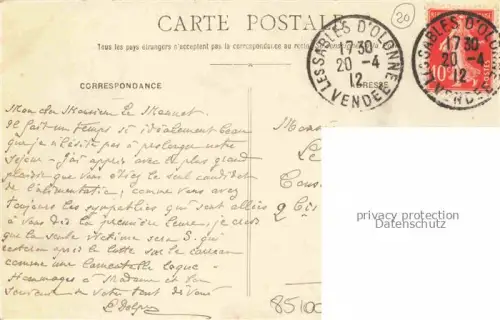 CARTE POSTALE
20
Tous les pays étrangers n'acceptent pas la correspondance au
LES SABLES D'OLONNE
17 30
20 -4
12
VENDEE
LES SABLES D'OLONNE
17 30
20 -4
12
VENDEE
10
CORRESPONDANCE
ADRESSE
Mon cher Monsieur Le Monnet
Il fait un temps si idéalement beau
que je n'hésite pas à prolonger notre
séjour - J'ai appris avec le plus grand
plaisir que vous étiez le seul candidat
de l'alimentation, comme vous avez
toujours les sympathies qui sont allées
à vous dès la première heure, je crois
que la seule victime sera S. qui
restera après la lutte sur le carreau
comme une lamentable loque -
Hommages à Madame et bon
souvenir de votre tout dévoué
Mons
Le
Cons
2 bis
privacy protection
Datenschutz
85100